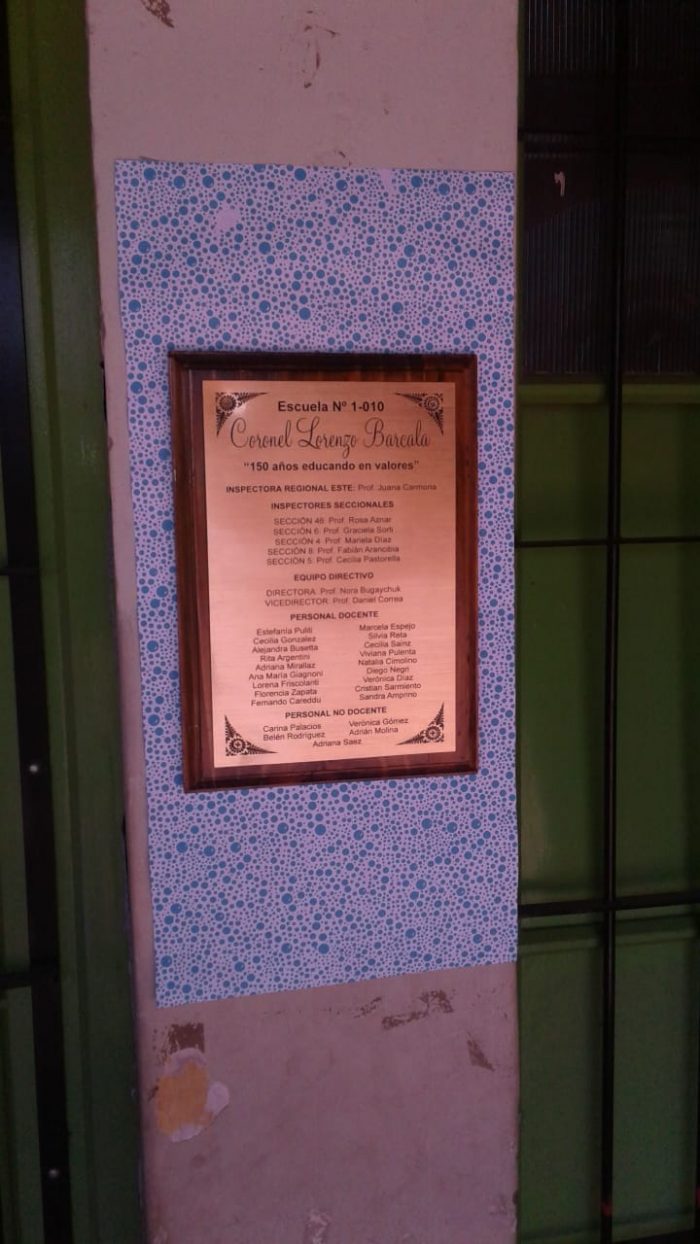 Escuela Nº 1-010
Coronel Lorenzo Barcala
"150 años educando en valores"
INSPECTORA REGIONAL ESTE: Prof. Juana Carmona
INSPECTORES SECCIONALES
SECCIÓN 46: Prof. Rosa Aznar
SECCIÓN 6: Prof. Graciela Sorti
SECCIÓN 4: Prof. Mariela Díaz
SECCIÓN 8: Prof. Fabián Arancibia
SECCIÓN 5: Prof. Cecilia Pastorella
EQUIPO DIRECTIVO
DIRECTORA: Prof. Nora Bugaychuk
VICEDIRECTOR: Prof. Daniel Correa
PERSONAL DOCENTE
Estefanía Puliti
Cecilia Gonzalez
Alejandra Busetta
Rita Argentini
Adriana Mirallaz
Ana María Giagnoni
Lorena Friscolanti
Florencia Zapata
Fernando Careddu
Marcela Espejo
Silvia Reta
Cecilia Sainz
Viviana Pulenta
Natalia Cimolino
Diego Negri
Verónica Díaz
Cristian Sarmiento
Sandra Amprino
PERSONAL NO DOCENTE
Carina Palacios
Belén Rodríguez
Verónica Gómez
Adrián Molina
Adriana Saez